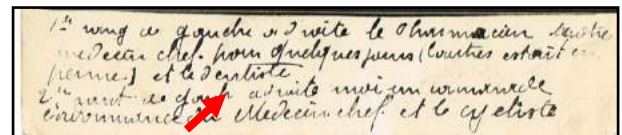 1er rang de gauche a droite le Pharmacien notre
medecin chef pour quelques jours (l'autre etait en
perme.) et le dentiste.
2e rang de gauche a droite moi un camarade
medecin chef et le cycliste